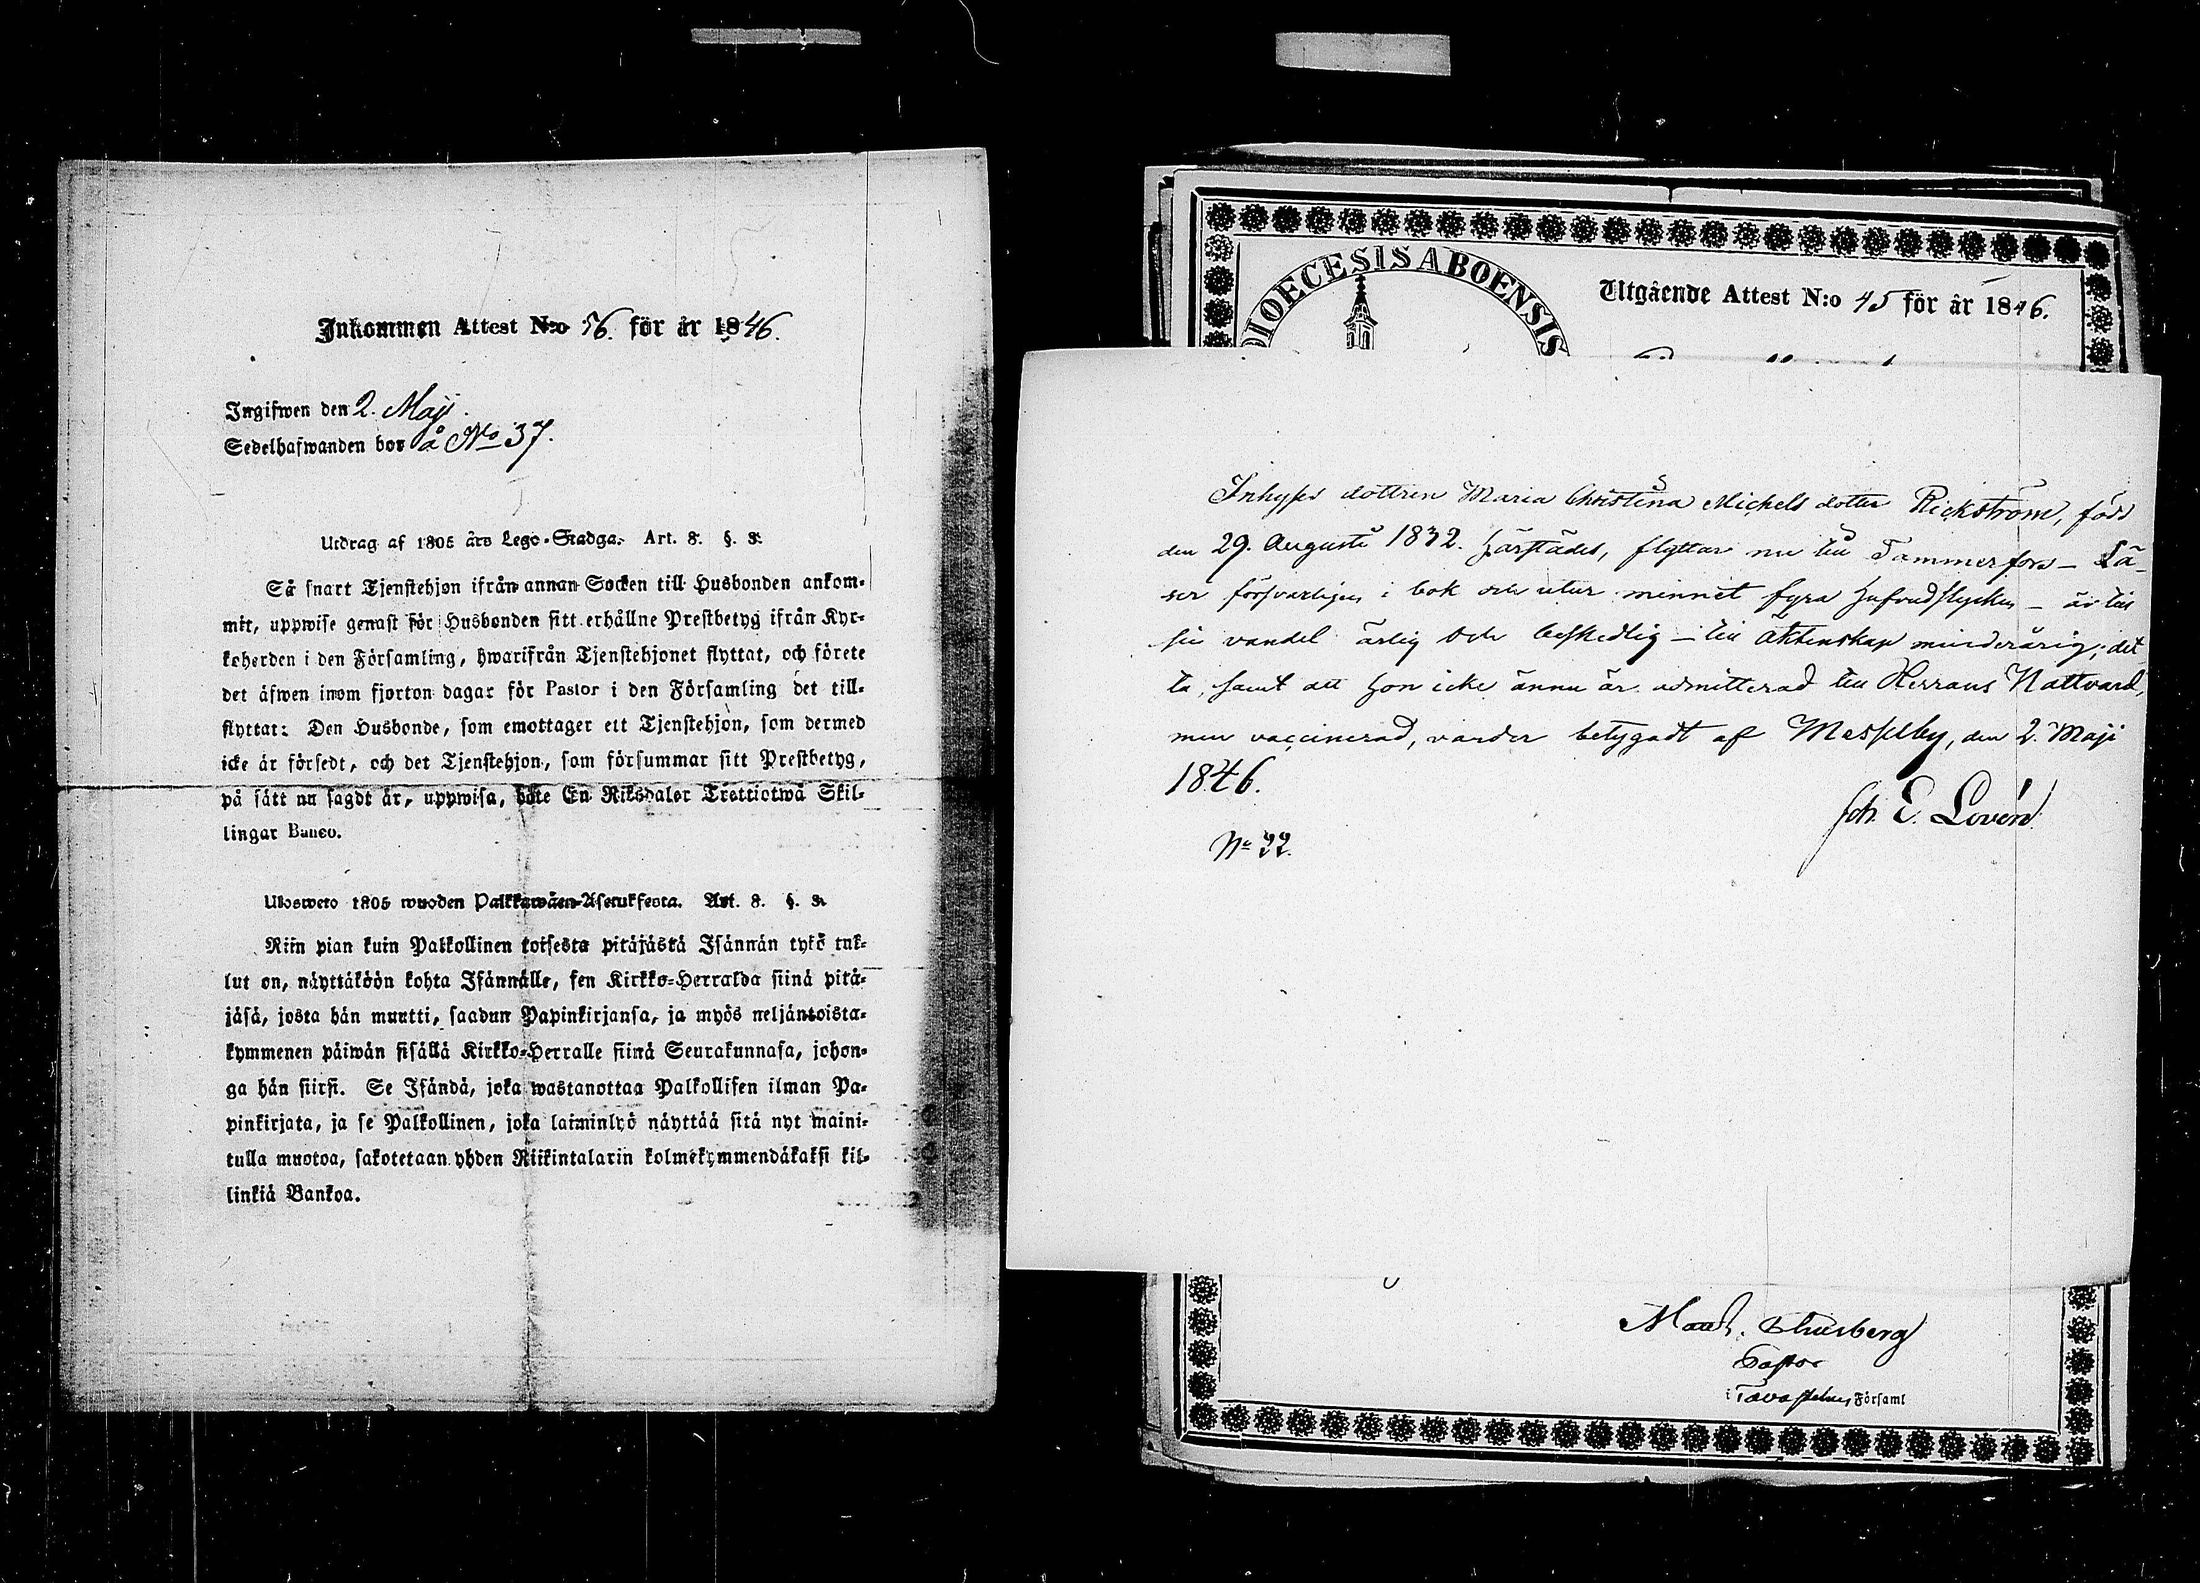 Inkommen Attest N:o 56. för år 1846.
Ingifwen den 2. Maji.
Sedelhafwanden bor å No 37.
Utdrag af 1805 års Lego-Stadga. Art. 8. §. 3.
Så snart Tjenstehjon ifrån annan Socken till Husbonden ankom-
mit, uppwise genast för Husbonden sitt erhållne Prestbetyg ifrån Kyr-
koherden i den Församling, hwarifrån Tjenstehjonet flyttat, och förete
det äfwen inom fjorton dagar för Pastor i den Församling det till-
flyttat: Den Husbonde, som emottager ett Tjenstehjon, som dermed
icke är försedt, och det Tjenstehjon, som försummar sitt Prestbetyg,
på sätt nu sagdt är, uppwisa, böte En Riksdaler Trettiotwå Skil-
lingar Banco.
Ulosweto 1805 wuoden Palkkawäen-Asetuksesta. Art. 8. §. 3.
Niin pian kuin Palkollinen toisesta pitäjästä Isännän tykö tul-
lut on, näyttäköön kohta Isännälle, sen Kirkko-Herralda siinä pitä-
jäsä, josta hän muutti, saadun Papinkirjansa, ja myös neljäntoista-
kymmenen päiwän sisällä Kirkko-Herralle siinä Seurakunnasa, johon-
ga hän siirsi. Se Isändä, joka wastanottaa Palkollisen ilman Pa-
pinkirjata, ja se Palkollinen, joka laiminlyö näyttää sitä nyt maini-
tulla muotoa, sakotetaan yhden Riikintalarin kolmekymmendäkaksi kil-
linkiä Bankoa.
DIOECESIS ABOENSIS
Utgående Attest N:o 45 för år 1846.
Inhyses dottren Maria Christina Michels dotter Rickström, född
den 29. Augusti 1832. härstädes, flyttar nu till Tammerfors – Lä-
ser försvarligen i bok och utur minnet fyra hufvudstycken – är till
sin vandel ärlig och beskedlig – till äktenskap minderårig; det
ta, samt att hon icke ännu är admitterad till Herrans Nattvard,
men vaccinerad, varder betygadt af Messuby, den 2. Maji
1846.
Joh. E. Lovén
No 22.
Thusberg
Pastor
i Tavastehus Församl